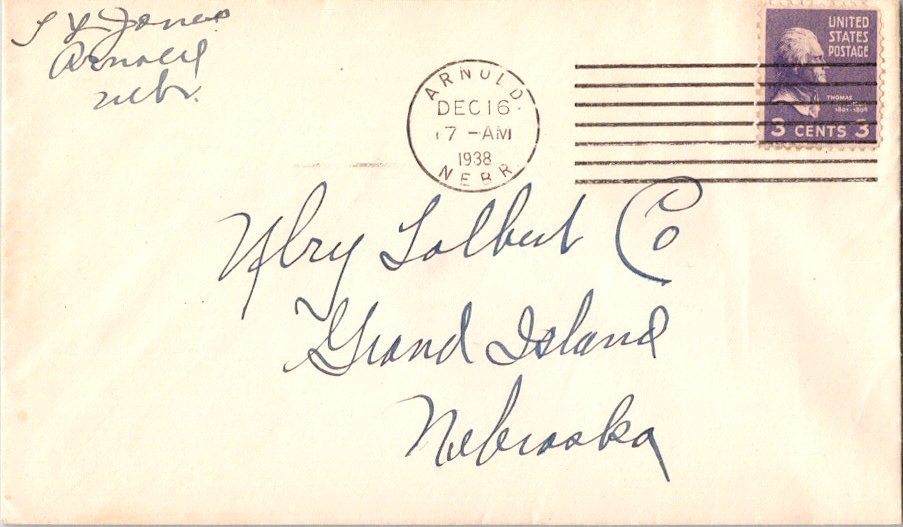 Jones
Arnold
Nebr.
ARNOLD.
DEC 16
7 - AM
1938
NEBR
UNITED
STATES
POSTAGE
THOMAS
1801-1809
3 CENTS 3
Tolbert Co
Grand Island
Nebraska